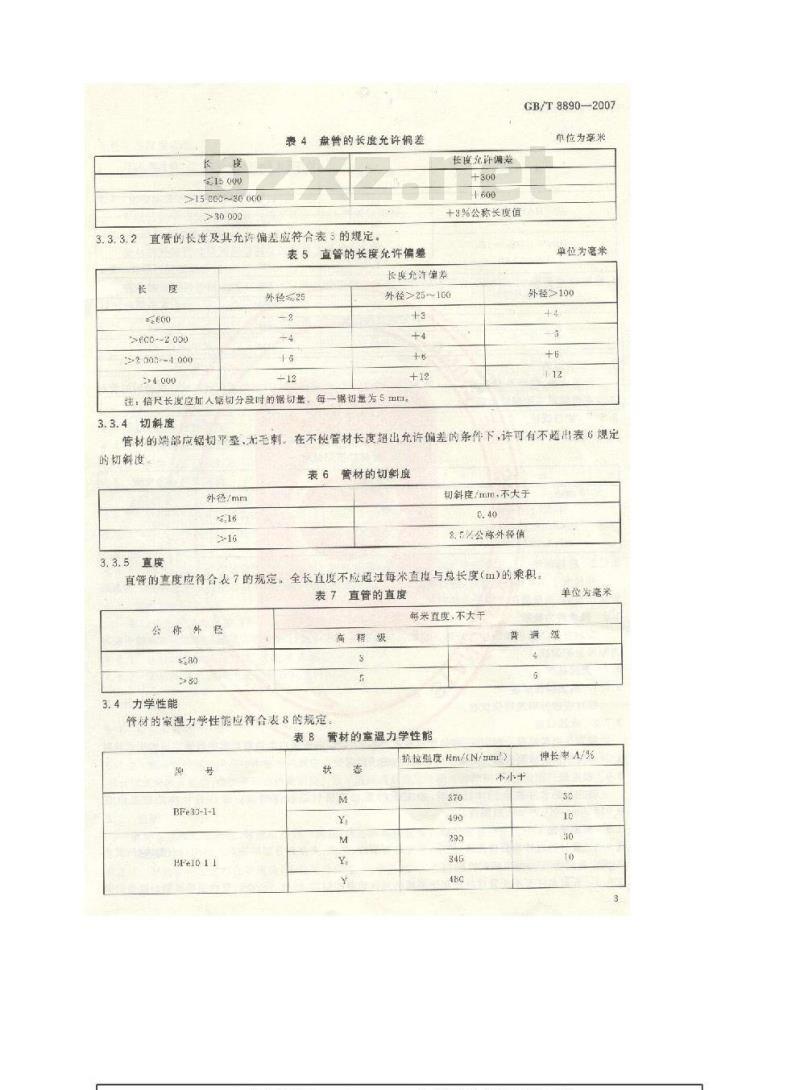 GB/T 8890—2007
表 4 盘管的长度允许偏差 单位为毫米
长 度 长度允许偏差
≤15 000 +300
>15 000~30 000 +600
>30 000 +3%公称长度值
bzxz.net
3.3.3.2 直管的长度及其允许偏差应符合表 5 的规定。
表 5 直管的长度允许偏差 单位为毫米
长 度 长度允许偏差
外径≤25 外径>25~100 外径>100
≤600 +2 +3 +4
>600~2 000 +4 +4 +5
>2 000~4 000 +6 +6 +6
>4 000 +12 +12 +12
注:倍尺长度应加入锯切分段时的锯切量。每一锯切量为 5 mm。
3.3.4 切斜度
管材的端部应锯切平整,无毛刺。在不使管材长度超出允许偏差的条件下,许可有不超出表 6 规定
的切斜度。
表 6 管材的切斜度
外径/mm 切斜度/mm,不大于
≤16 0.40
>16 2.5%公称外径值
3.3.5 直度
直管的直度应符合表 7 的规定。全长直度不应超过每米直度与总长度(m)的乘积。
表 7 直管的直度 单位为毫米
公 称 外 径 每米直度,不大于
高 精 级 普 通 级
≤80 3 4
>80 5 6
3.4 力学性能
管材的室温力学性能应符合表 8 的规定。
表 8 管材的室温力学性能
牌 号 状 态 抗拉强度 Rm/(N/mm²) 伸长率 A/%
不小于
BFe30-1-1 M 370 30
Y₂ 490 10
BFe10-1-1 M 290 30
Y₂ 345 10
Y 480
3